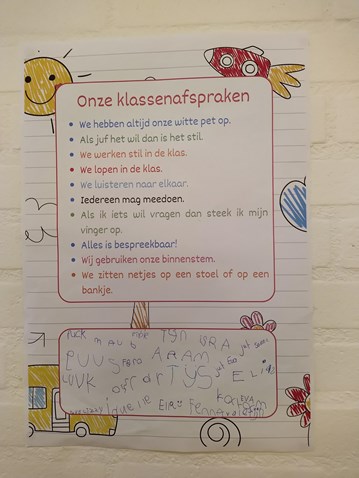 Onze klassenafspraken
We hebben altijd onze witte pet op.
Als juf het wil dan is het stil.
We werken stil in de klas.
We lopen in de klas.
We luisteren naar elkaar.
Iedereen mag meedoen.
Als ik iets wil vragen dan steek ik mijn
vinger op.
Alles is bespreekbaar!
Wij gebruiken onze binnenstem.
We zitten netjes op een stoel of op een
bankje.
Puck
ARAM
TYS
Fenna